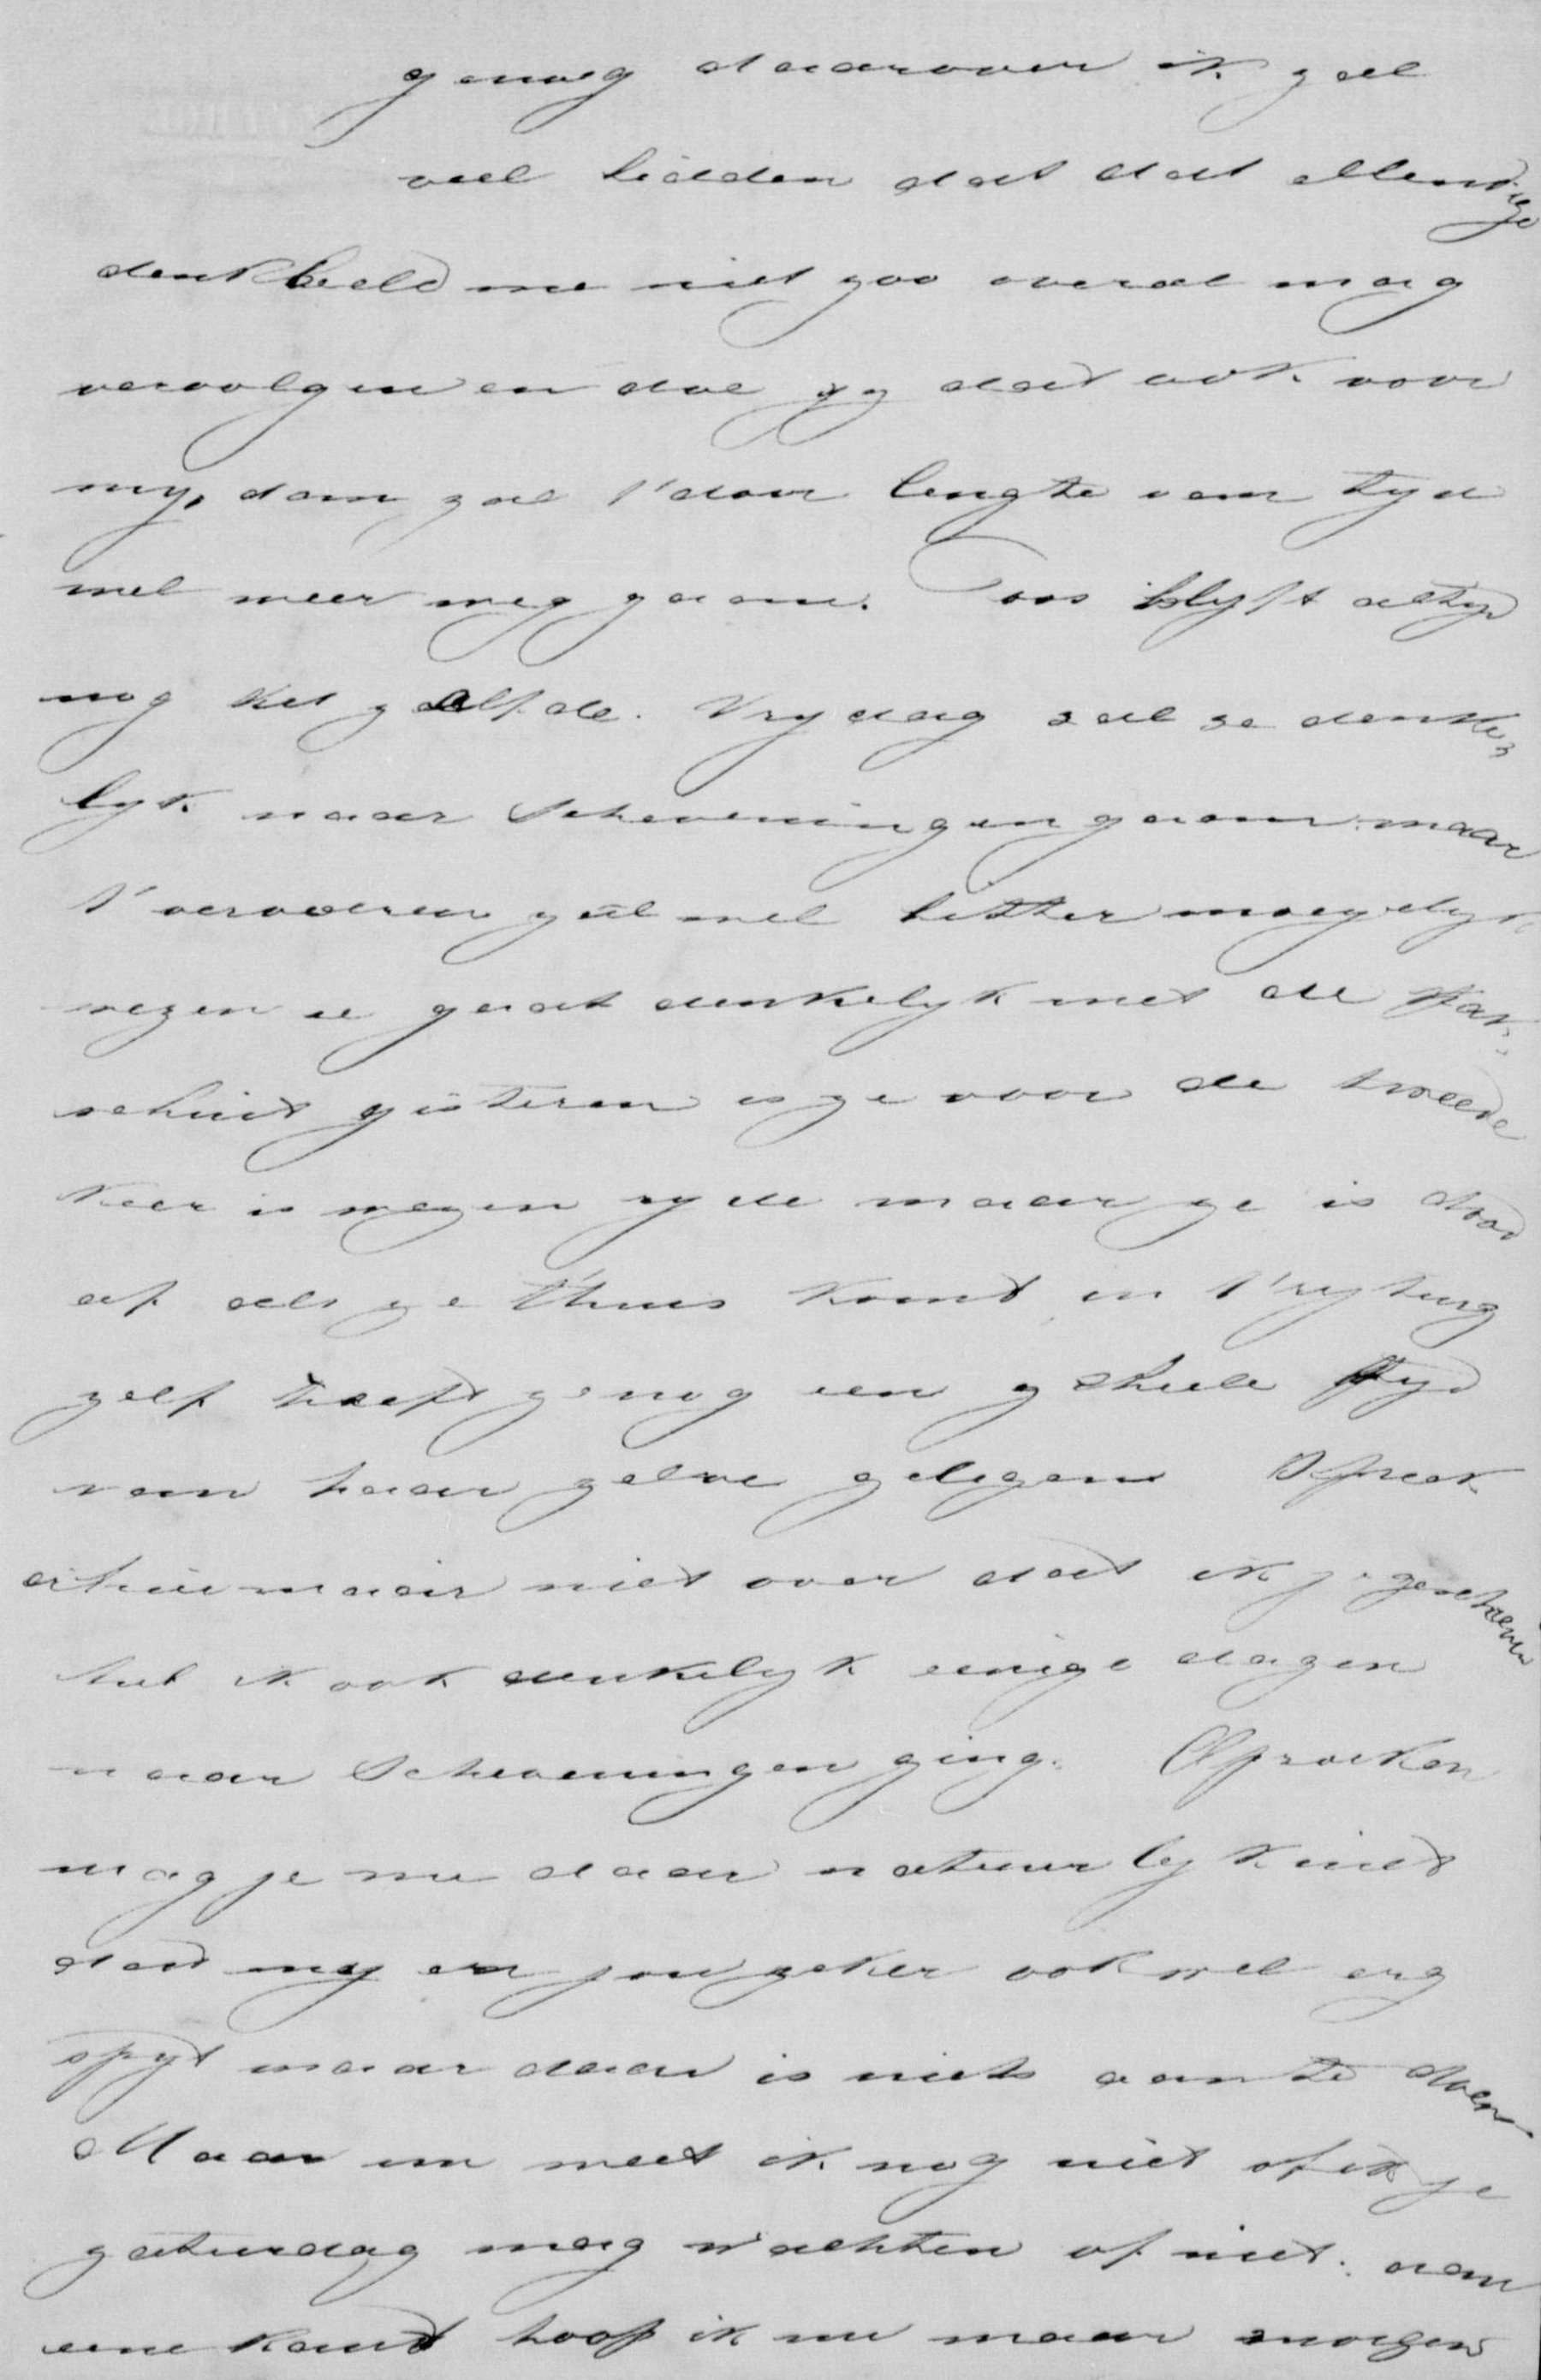 genoeg daarover ik zal
veel bidden dat dat ellendige
denkbeeld me niet zoo overal mag
vervolgen en doe jy dat ook voor
my, dan zal t' door lengte van tyd
wel weer weg gaan. Toos blyft altyd
nog het zelfde. Vrydag zal ze denke,
lyk naar Scheveningen gaan maar
t' vervoeren zal wel bitter moeyelyk
wezen ze gaat denkelyk met de
schuit gisteren is ze voor de tweede
keer is wezen ryde maar ze is dood
af als ze thuis komt, en t' rytuig
zelf heeft ze nog een geheele tyd
van haar zelve gelegen Spreek
er hier maar niet over dat ik je geschreven
heb ik ook denkelyk eenige dagen
naar Scheveningen ging. Spreeken
mag je me daar natuurlyk niet
dat my en jou zeker ook wel erg
spyt maar daar is niets aan te doen
Maar nu weet ik nog niet of ik je
zaturdag mag wachten of niet. aan
eene kant hoop ik nu maar morgen